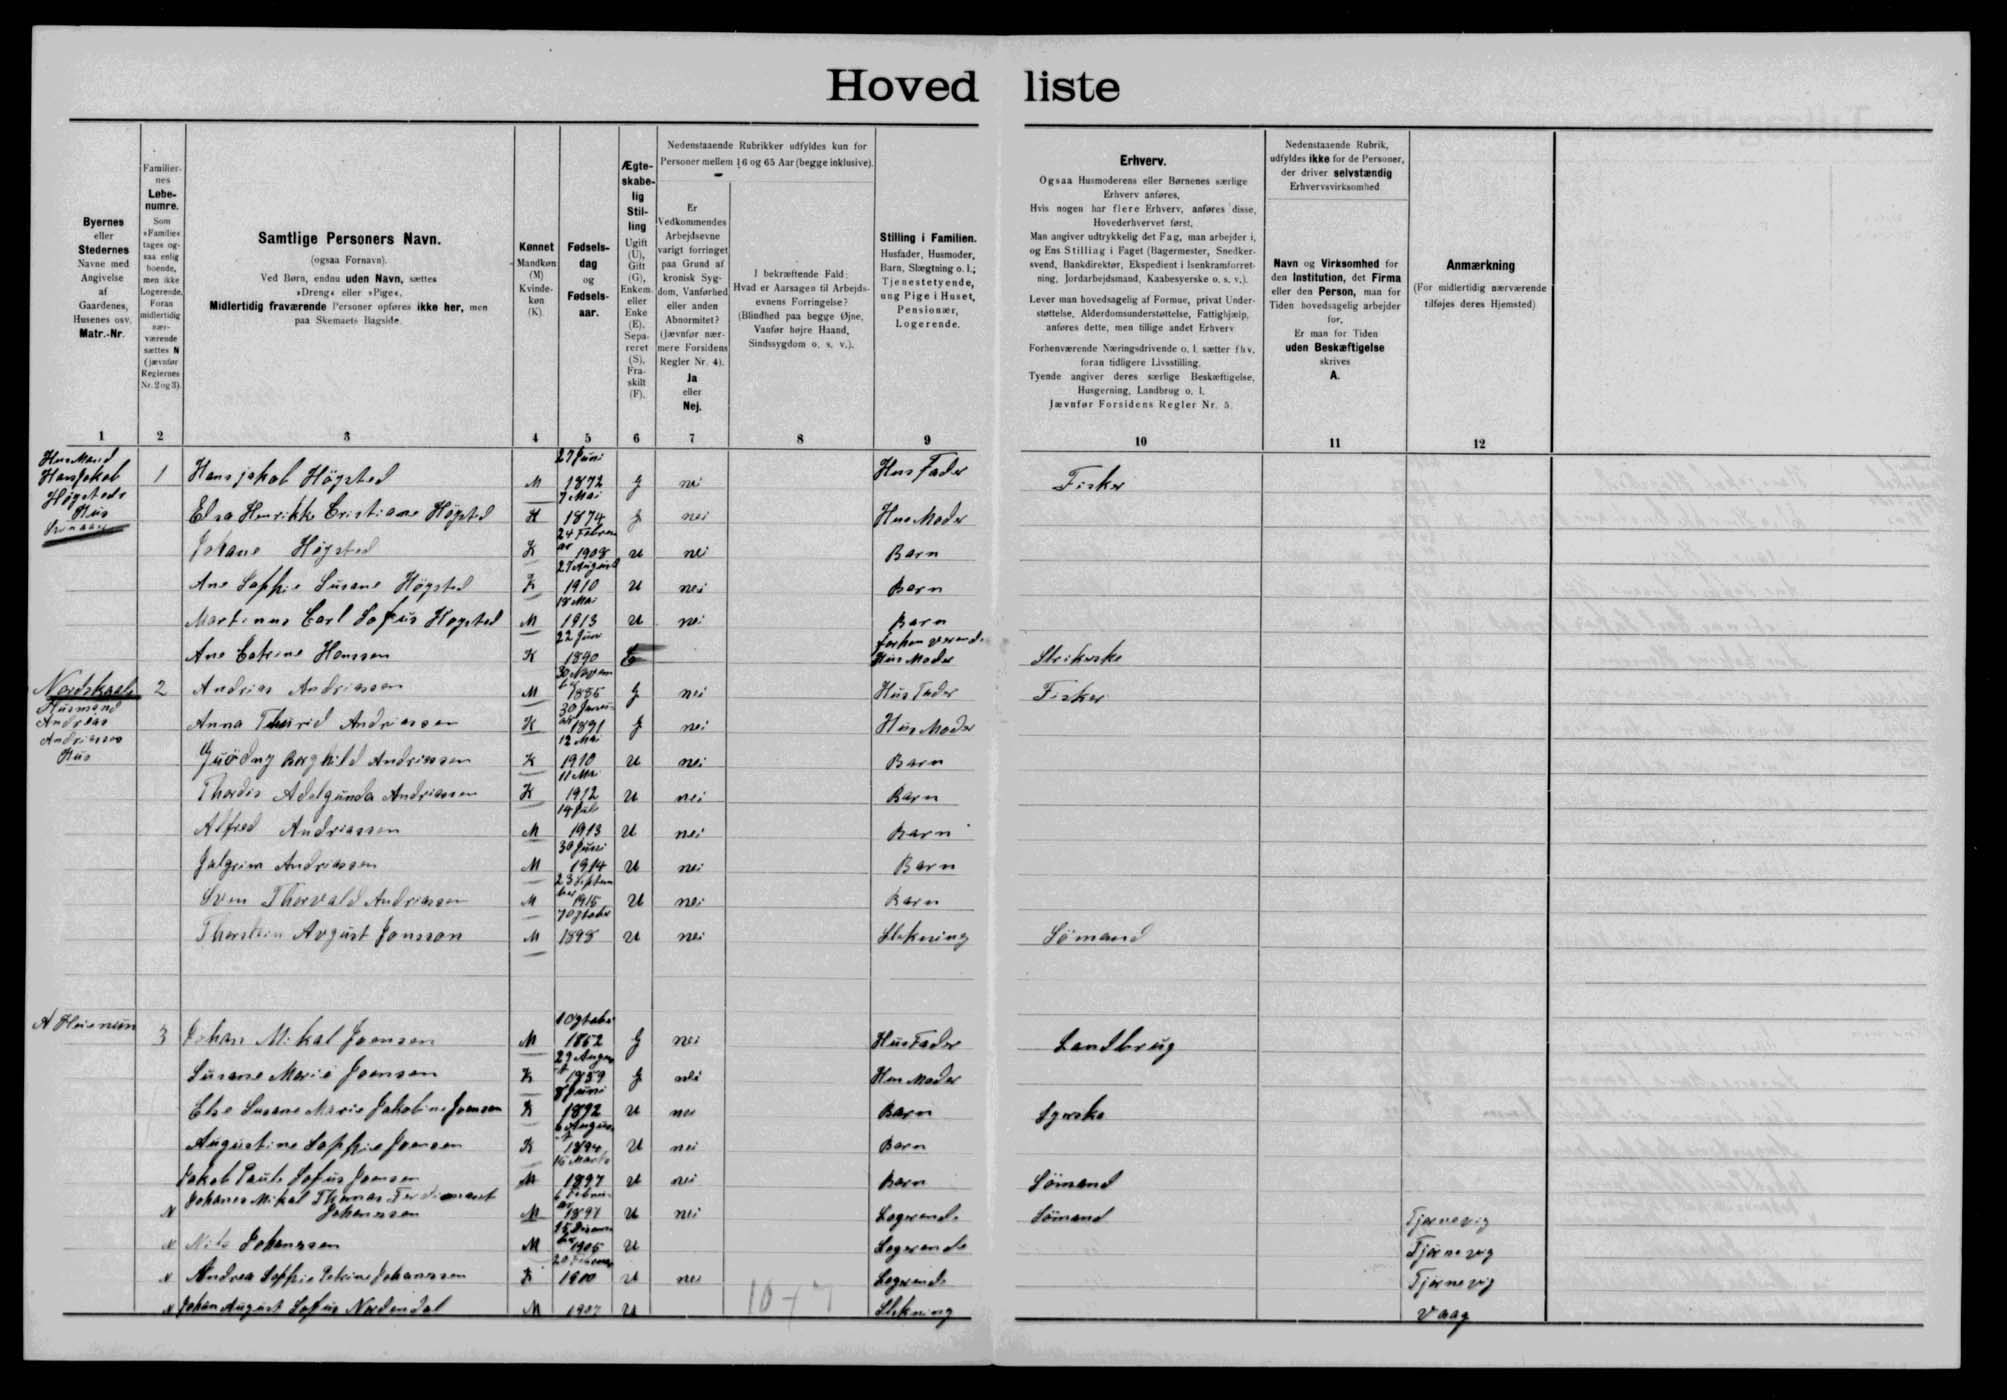 Hovedliste
Byernes eller Stedernes Navne med Angivelse af Gaardenes, Husenes osv. Matr.-Nr.
Familiernes Løbenumre. Som »Familie« tages ogsaa enlig boende, men ikke Logerende. Foran midlertidig nærværende sættes N (jævnfør Reglernes Nr. 2 og 3).
Samtlige Personers Navn. (ogsaa Fornavn). Ved Børn, endnu uden Navn, sættes »Dreng« eller »Pige«. Midlertidig fraværende Personer opføres ikke her, men paa Skemaets Bagside.
Kønnet Mandkøn (M) Kvindekøn (K).
Fødselsdag og Fødselsaar.
Ægteskabelig Stilling Ugift (U), Gift (G), Enkem. eller Enke (E), Separeret (S), Fraskilt (F).
Nedenstaaende Rubrikker udfyldes kun for Personer mellem 16 og 65 Aar (begge inklusive).
Er Vedkommendes Arbejdsevne varigt forringet paa Grund af kronisk Sygdom, Vanførhed eller anden Abnormitet? (Jævnfør nærmere Forsidens Regler Nr. 4). Ja eller Nej.
I bekræftende Fald: Hvad er Aarsagen til Arbejdsevnens Forringelse? (Blindhed paa begge Øjne, Vanfør højre Haand, Sindssygdom o. s. v.).
Stilling i Familien. Husfader, Husmoder, Barn, Slægtning o. l.; Tjenestetyende, ung Pige i Huset, Pensionær, Logerende.
Erhverv.
Ogsaa Husmoderens eller Børnenes særlige Erhverv anføres,
Hvis nogen har flere Erhverv, anføres disse, Hovederhvervet først,
Man angiver udtrykkelig det Fag, man arbejder i, og Ens Stilling i Faget (Bagermester, Snedkersvend, Bankdirektør, Ekspedient i Isenkramforretning, Jordarbejdsmand, Kaabesyerske o. s. v.).
Lever man hovedsagelig af Formue, privat Understøttelse, Alderdomsunderstøttelse, Fattighjælp, anføres dette, men tillige andet Erhverv
Forhenværende Næringsdrivende o. l. sætter fhv. foran tidligere Livsstilling.
Tyende angiver deres særlige Beskæftigelse, Husgerning, Landbrug o. l.
Jævnfør Forsidens Regler Nr. 5.
Nedenstaaende Rubrik, udfyldes ikke for de Personer, der driver selvstændig Erhvervsvirksomhed
Navn og Virksomhed for den Institution, det Firma eller den Person, man for Tiden hovedsagelig arbejder for,
Er man for Tiden uden Beskæftigelse skrives A.
Anmærkning (For midlertidig nærværende tilføjes deres Hjemsted)
1 2 3 4 5 6 7 8 9 10 11 12
HusMand Hansjakob Høgsteds Hus
1 Hansjakob Høgsted M 27 Juni 1872 G nei HusFader Fisker
Elsa Henrikke Cristiane Høgsted K 7 Mai 1874 G nei HusModer
Johane Høgsted K 24 Februar 1908 U nei Barn
Ane Soffie Susane Høgsted K 27 August 1910 U nei Barn
Martinus Carl Sofus Høgsted M 18 Mai 1913 U nei Barn
Ane Catrine Hanssen K 22 Juni 1840 E forhenverende HusModer Strikeske
Nordskaale Husmand Andrias Andriasens Hus
2 Andrias Andriassen M 30 November 1885 G nei HusFader Fisker
Anna Thurid Andriassen K 30 Januar 1891 G nei HusModer
Guödny Borghild Andriassen K 12 Mai 1910 U nei Barn
Thordis Adelgunda Andriassen K 11 Mai 1912 U nei Barn
Alfred Andriassen M 14 Juli 1913 U nei Barn
Jalgrim Andriassen M 30 Juni 1914 U nei Barn
Sven Thorvald Andriassen M 23 September 1915 U nei Barn
Thorstein Avgust Jonsson M 7 Ogtober 1898 U nei Slekning Sömand
A Heienum
3 Johan Mikal Joensen M 1 Ogtober 1852 G nei HusFader Landbrug
Susane Marie Joensen K 29 August 1859 G nei HusModer
Else Susane Marie Jakobine Joensen K 8 Juni 1892 U nei Barn Syerske
Augustine Soffie Joensen K 6 August 1894 U nei Barn
Jakob Pauli Sofus Joensen M 15 Marts 1897 U nei Barn Sömand
N Johanes Mikal Thomas Ferdinant Johanessen M 6 Februar 1897 U nei Logerende Sömand Tjørnevig
N Nils Johanessen M 15 Disember 1905 U Logerende Tjørnevig
N Andrea Soffie Petrine Johanessen K 20 Februar 1900 U nei Logerende Tjørnevig
N Johan August Sofus Nordendal M 1907 U Slekning Vaag
10 + 7